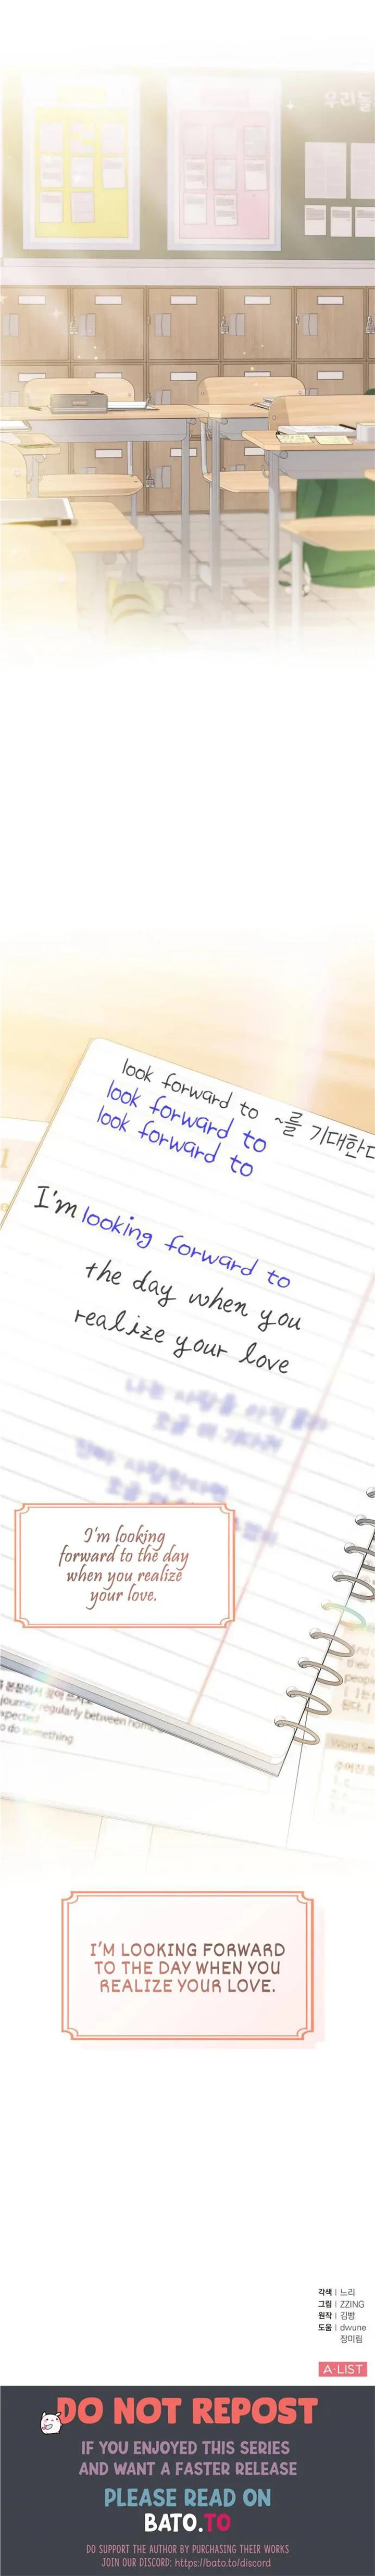 우리들
look forward to ~를 기대한다
look forward to
look forward to
I'm looking forward to
the day when you
realize your love
I'm looking
forward to the day
when you realize
your love.
journey regularly between home
xpected
o do something
I'M LOOKING FORWARD
TO THE DAY WHEN YOU
REALIZE YOUR LOVE.
각색 | 느리
그림 | ZZING
원작 | 김빵
도움 | dwune
장미림
A-LIST
DO NOT REPOST
IF YOU ENJOYED THIS SERIES
AND WANT A FASTER RELEASE
PLEASE READ ON
BATO.TO
DO SUPPORT THE AUTHOR BY PURCHASING THEIR WORKS
JOIN OUR DISCORD: https://bato.to/discord